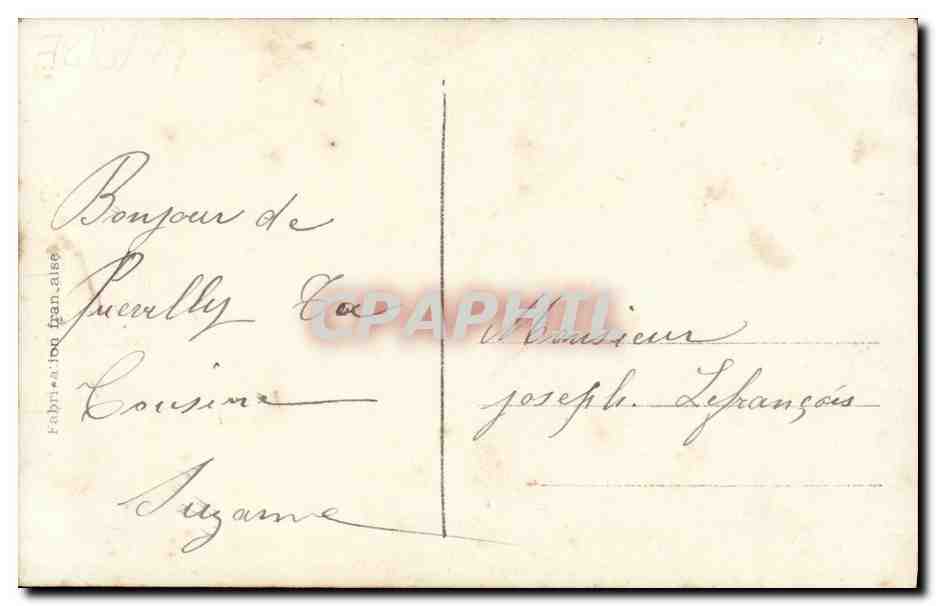 Bonjour de
Ta
Cousine
Suzanne
Monsieur
joseph. Lefrançois
Fabrication française
CPAPHIL